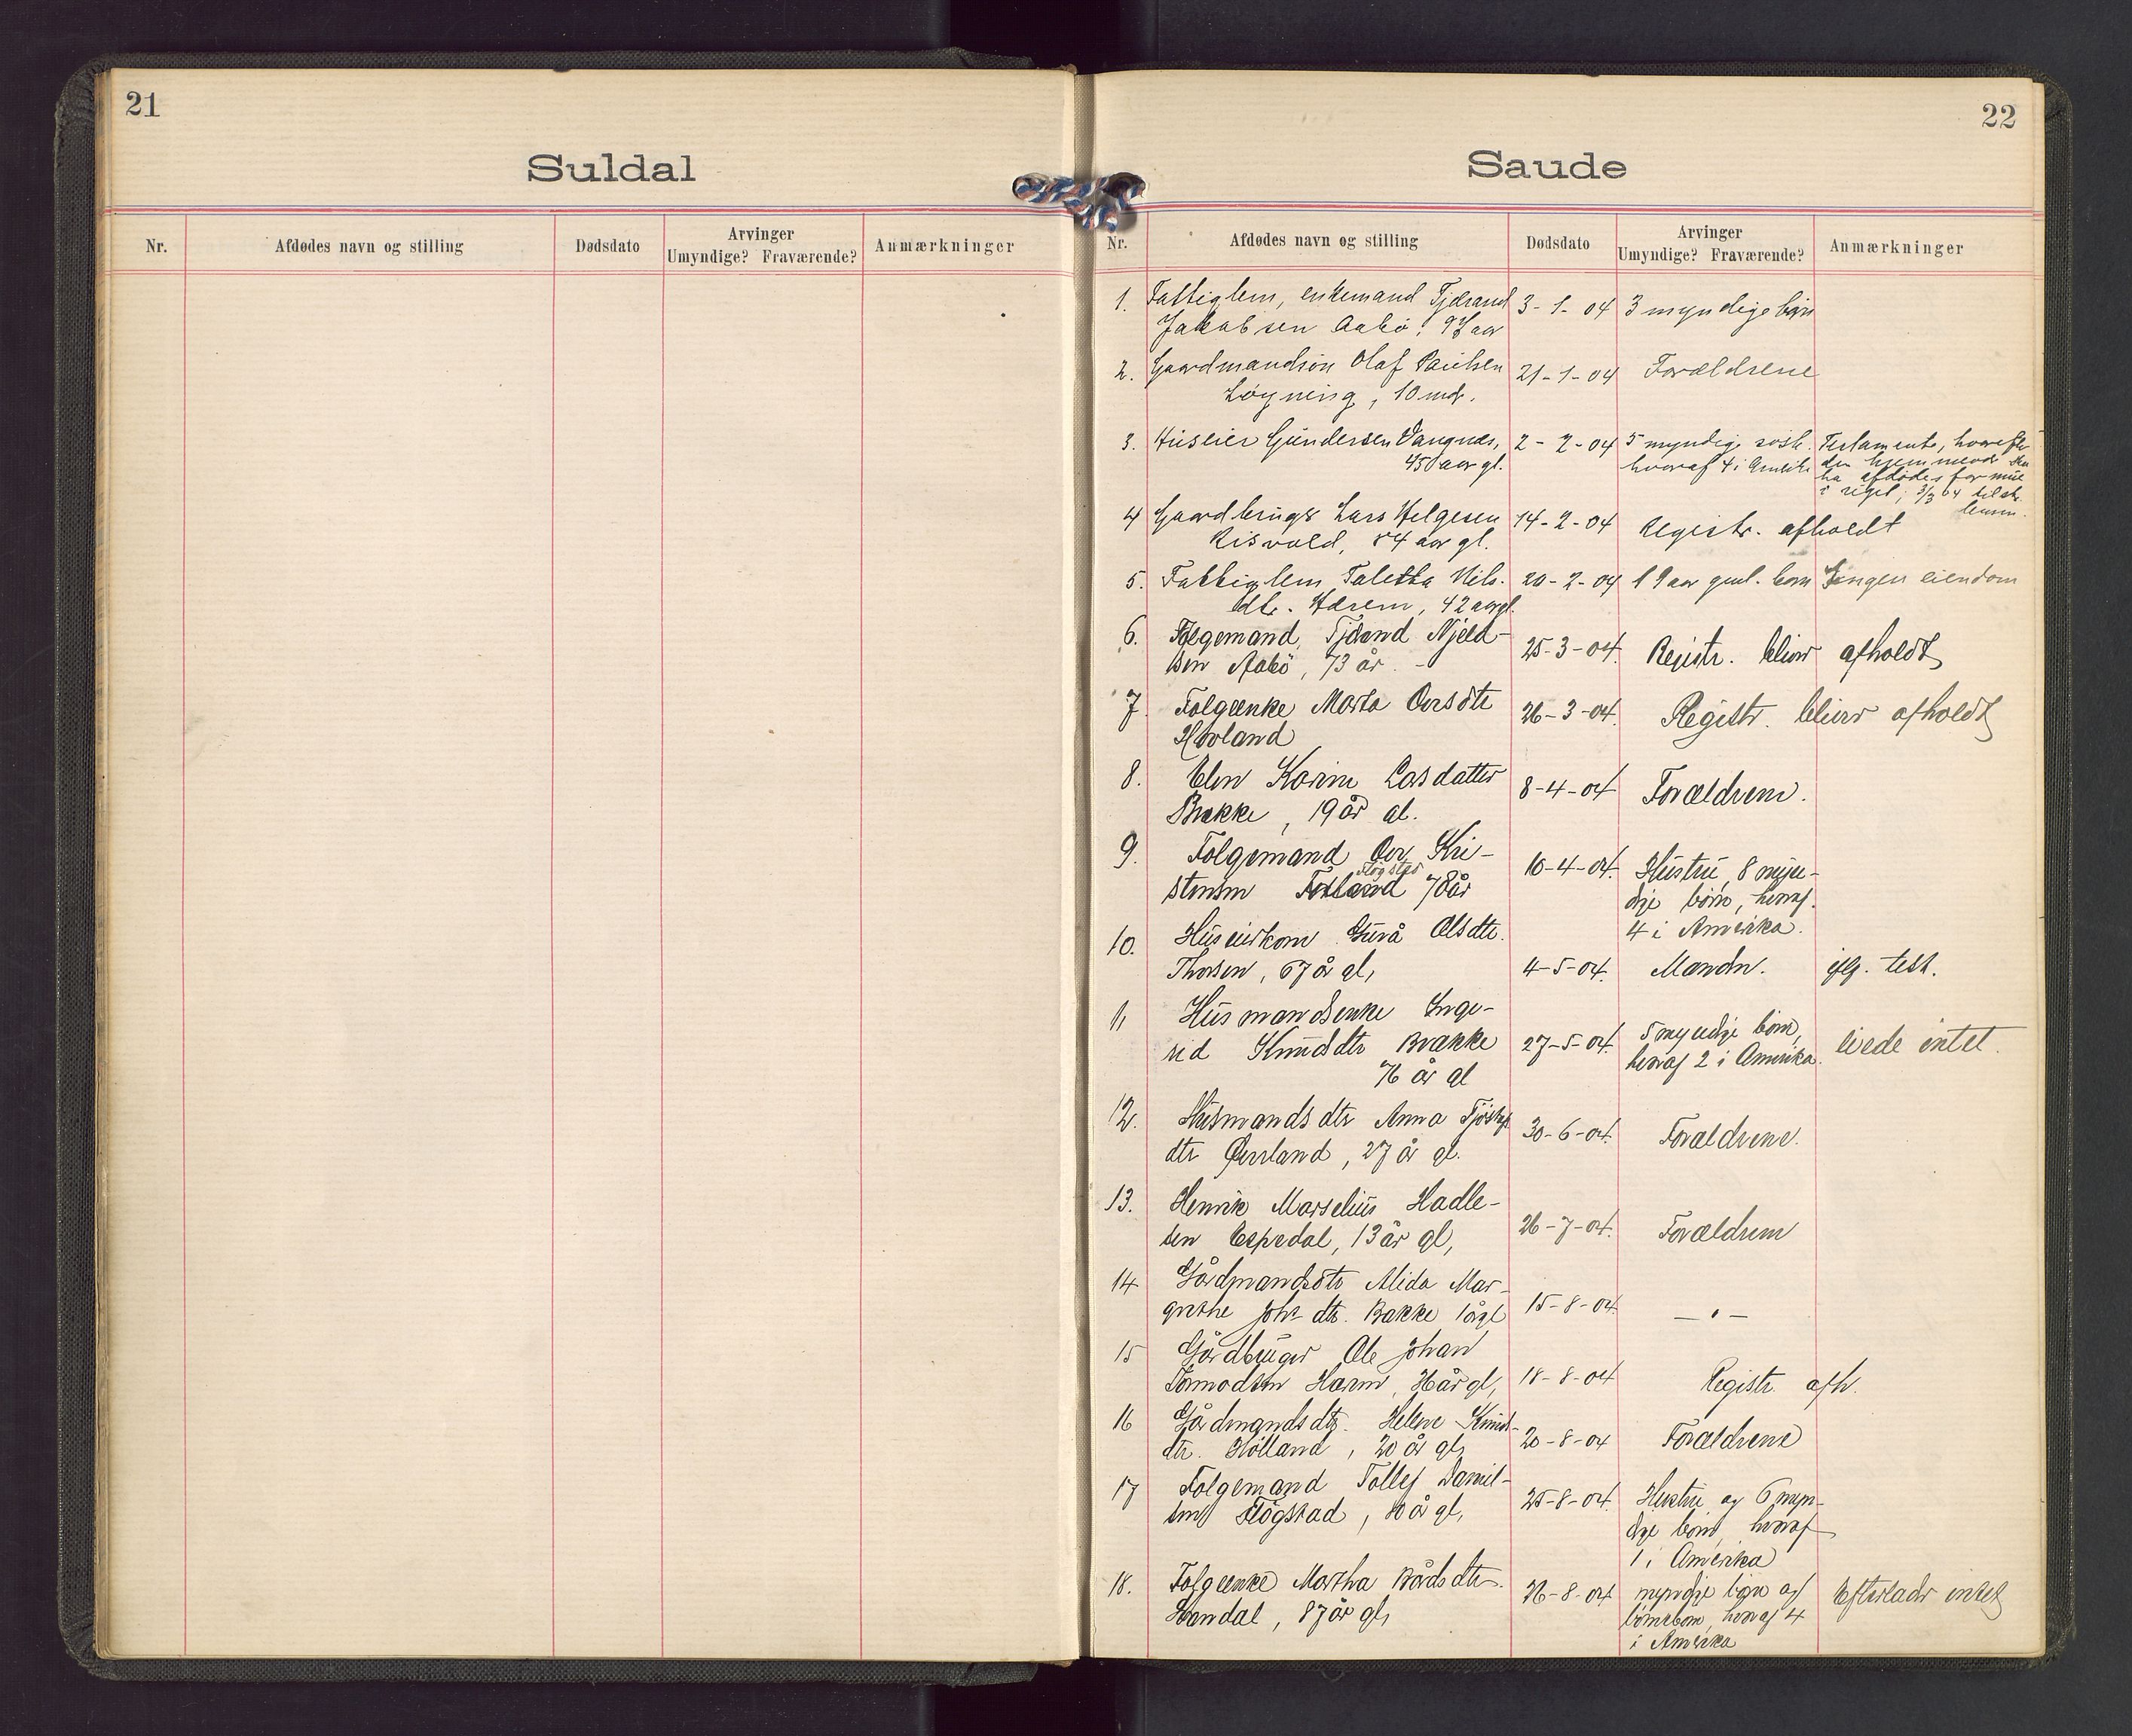 21
Suldal
Nr. Afdødes navn og stilling Dødsdato Arvinger Umyndige? Fraværende? Anmærkninger
22
Saude
Nr. Afdødes navn og stilling Dødsdato Arvinger Umyndige? Fraværende? Anmærkninger
1. Fattiglem, enkemand Tjerand 3-1-04 3 myndige børn
Jakobsen Aabø, aar
2. Gaardmandsøn Olaf Paulsen 21-1-04 Forældrene
Løyning, 10 md.
3. Huseier Gundersen Vangnes, 2-2-04 5 myndige søsk. Testamente, hvorefter
45 aar gl. hvoraf 4 i Amerika den hjemmevær
ha afdødes formue
i riget; 3/3 04 tilskr.
lensm.
4 Gaardbruger Lars Helgesen 14-2-04 Registr. afholdt
Risvold, 84 aar gl.
5. Fattiglem Taletta Nils- 20-2-04 1 9 aar geml. barn Ingen eiendom
dtr. Hærem, 42 aar gl.
6. Følgemand Tjerand Njeld- 25-3-04. Registr. bliver afholdt
sen Aabø, 73 år.
7. Folgeenke Marta Oersdtr 26-3-04. Registr. bliver afholdt
Hovland
8. Elen Karine Larsdatter 8-4-04 Forældrene.
Bakke, 19 år gl.
9. Følgemand Oer Kri- 10-4-04. Hustru, 8 myn-
Fløgstad
stensen 78 år dige børn, hvoraf
4 i Amerika.
10. Huseierkone Gurå Olsdtr.
Thorsen, 67 år gl, 4-5-04. Manden. iflg. test.
11 Husmandsenke Inge-
rid Knudsdtr Bakke 27-5-04. 5 myndige børn, eiede intet.
76 år gl hvoraf 2 i Amerika.
12. Husmandsdtr Anna 30-6-04. Forældrene.
dtr Øverland, 27 år gl.
13. Henrik Marselius Hadle-
sen Espedal, 13 år gl, 26-7-04. Forældrene
14 Gårdmandsdtr Alida Mar-
grethe Johs dtr. Bakke 1 år gl 15-8-04. — " —
15 Gårdbruger Ole Johan
Tormodsen Hærem, år gl, 18-8-04 Registr. afh.
16 Gårdmandsdtr. Helene Knuds-
dtr. Hølland, 20 år gl, 20-8-04 Forældrene
17 Følgemand Tollef Daniel- 25-8-04. Hustru og 6 myn-
sen Fløgstad, 80 år gl, dige børn, hvoraf
1 i Amerika
18. Folgeenke Martha Bårdsdtr. 26-8-04 myndige børn og Efterlader intet
87 år gl, børnebørn, hvoraf 4
i Amerika